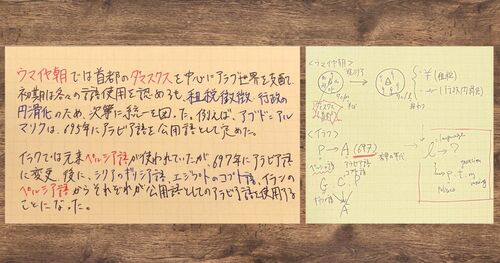 ウマイヤ朝では首都のダマスクスを中心にアラブ世界を支配。
初期は各々の言語使用を認めるも、租税徴徴・行政の
円滑化のため、次第に統一を図った。例えば、アブド=アル
マリクは、695年にアラビア語を公用語として定めた。
イラクでは元来ペルシア語が使われていたが、697年にアラビア語
に変更。後に、シリアのギリシア語、エジプトのコプト語、イランの
ペルシア語からそれぞれが公用語としてのアラビア語を使用する
ことになった。
<ウマイヤ朝>
(租税)
(行政円滑化)
<イラク>
P → A (697)
ペルシア語
アラビア語
G C P
A
language
l → ?
question